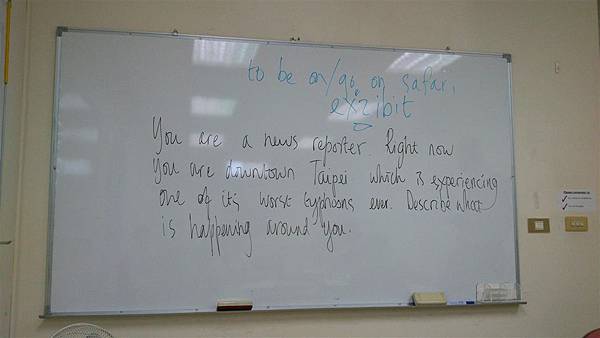 to be on/go on safari,
exzibit
You are a news reporter. Right now
you are downtown Taipei which is experiencing
one of it's worst typhoons ever. Describe what
is happening around you.